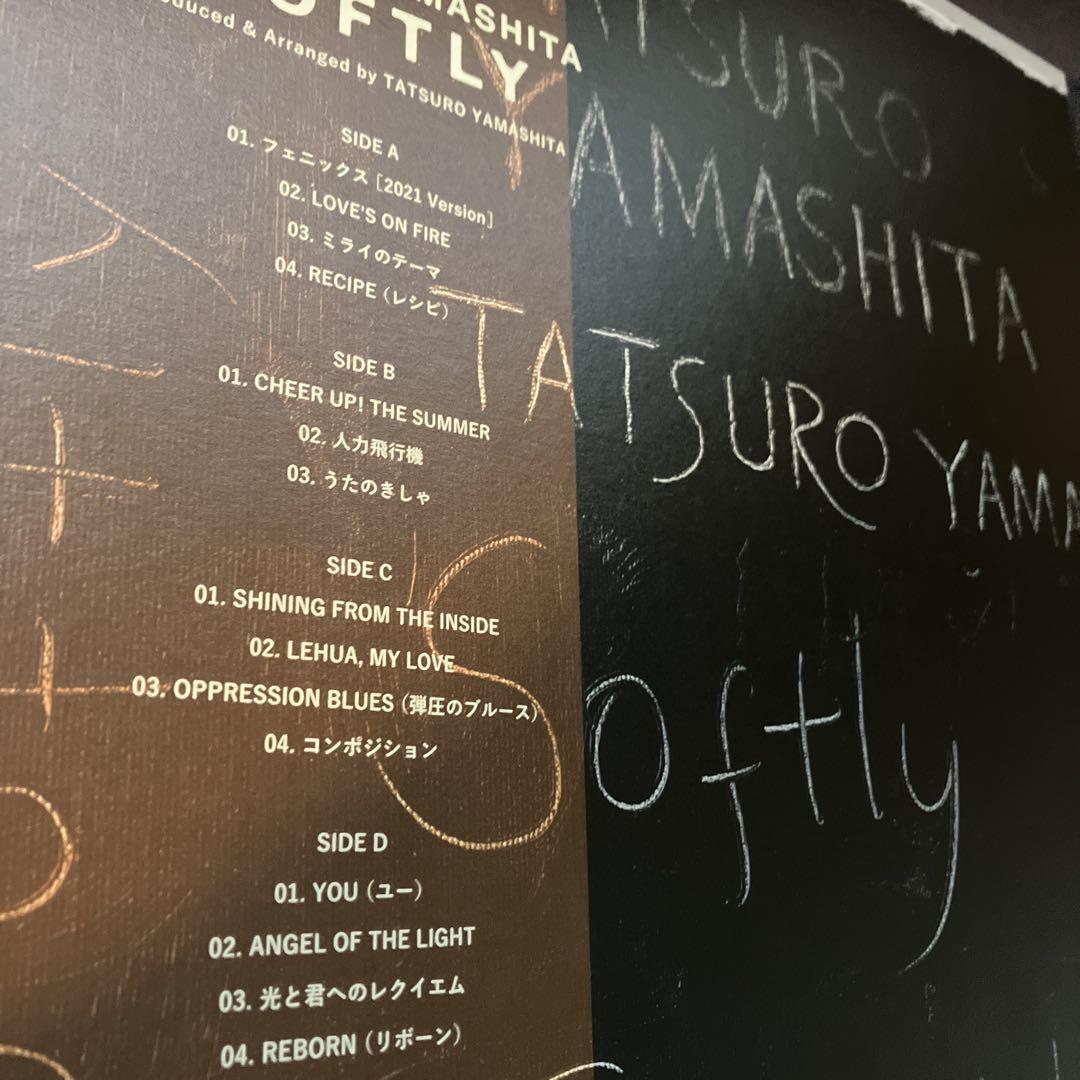 AMASHITA
OFTLY
oduced & Arranged by TATSURO YAMASHITA
SIDE A
01. フェニックス [2021 Version]
02. LOVE'S ON FIRE
03. ミライのテーマ
04. RECIPE (レシピ)
SIDE B
01. CHEER UP! THE SUMMER
02. 人力飛行機
03. うたのきしゃ
SIDE C
01. SHINING FROM THE INSIDE
02. LEHUA, MY LOVE
03. OPPRESSION BLUES (弾圧のブルース)
04. コンポジション
SIDE D
01. YOU (ユー)
02. ANGEL OF THE LIGHT
03. 光と君へのレクイエム
04. REBORN (リボーン)
TSURO
YAMASHITA
TATSURO YAMA
Softly